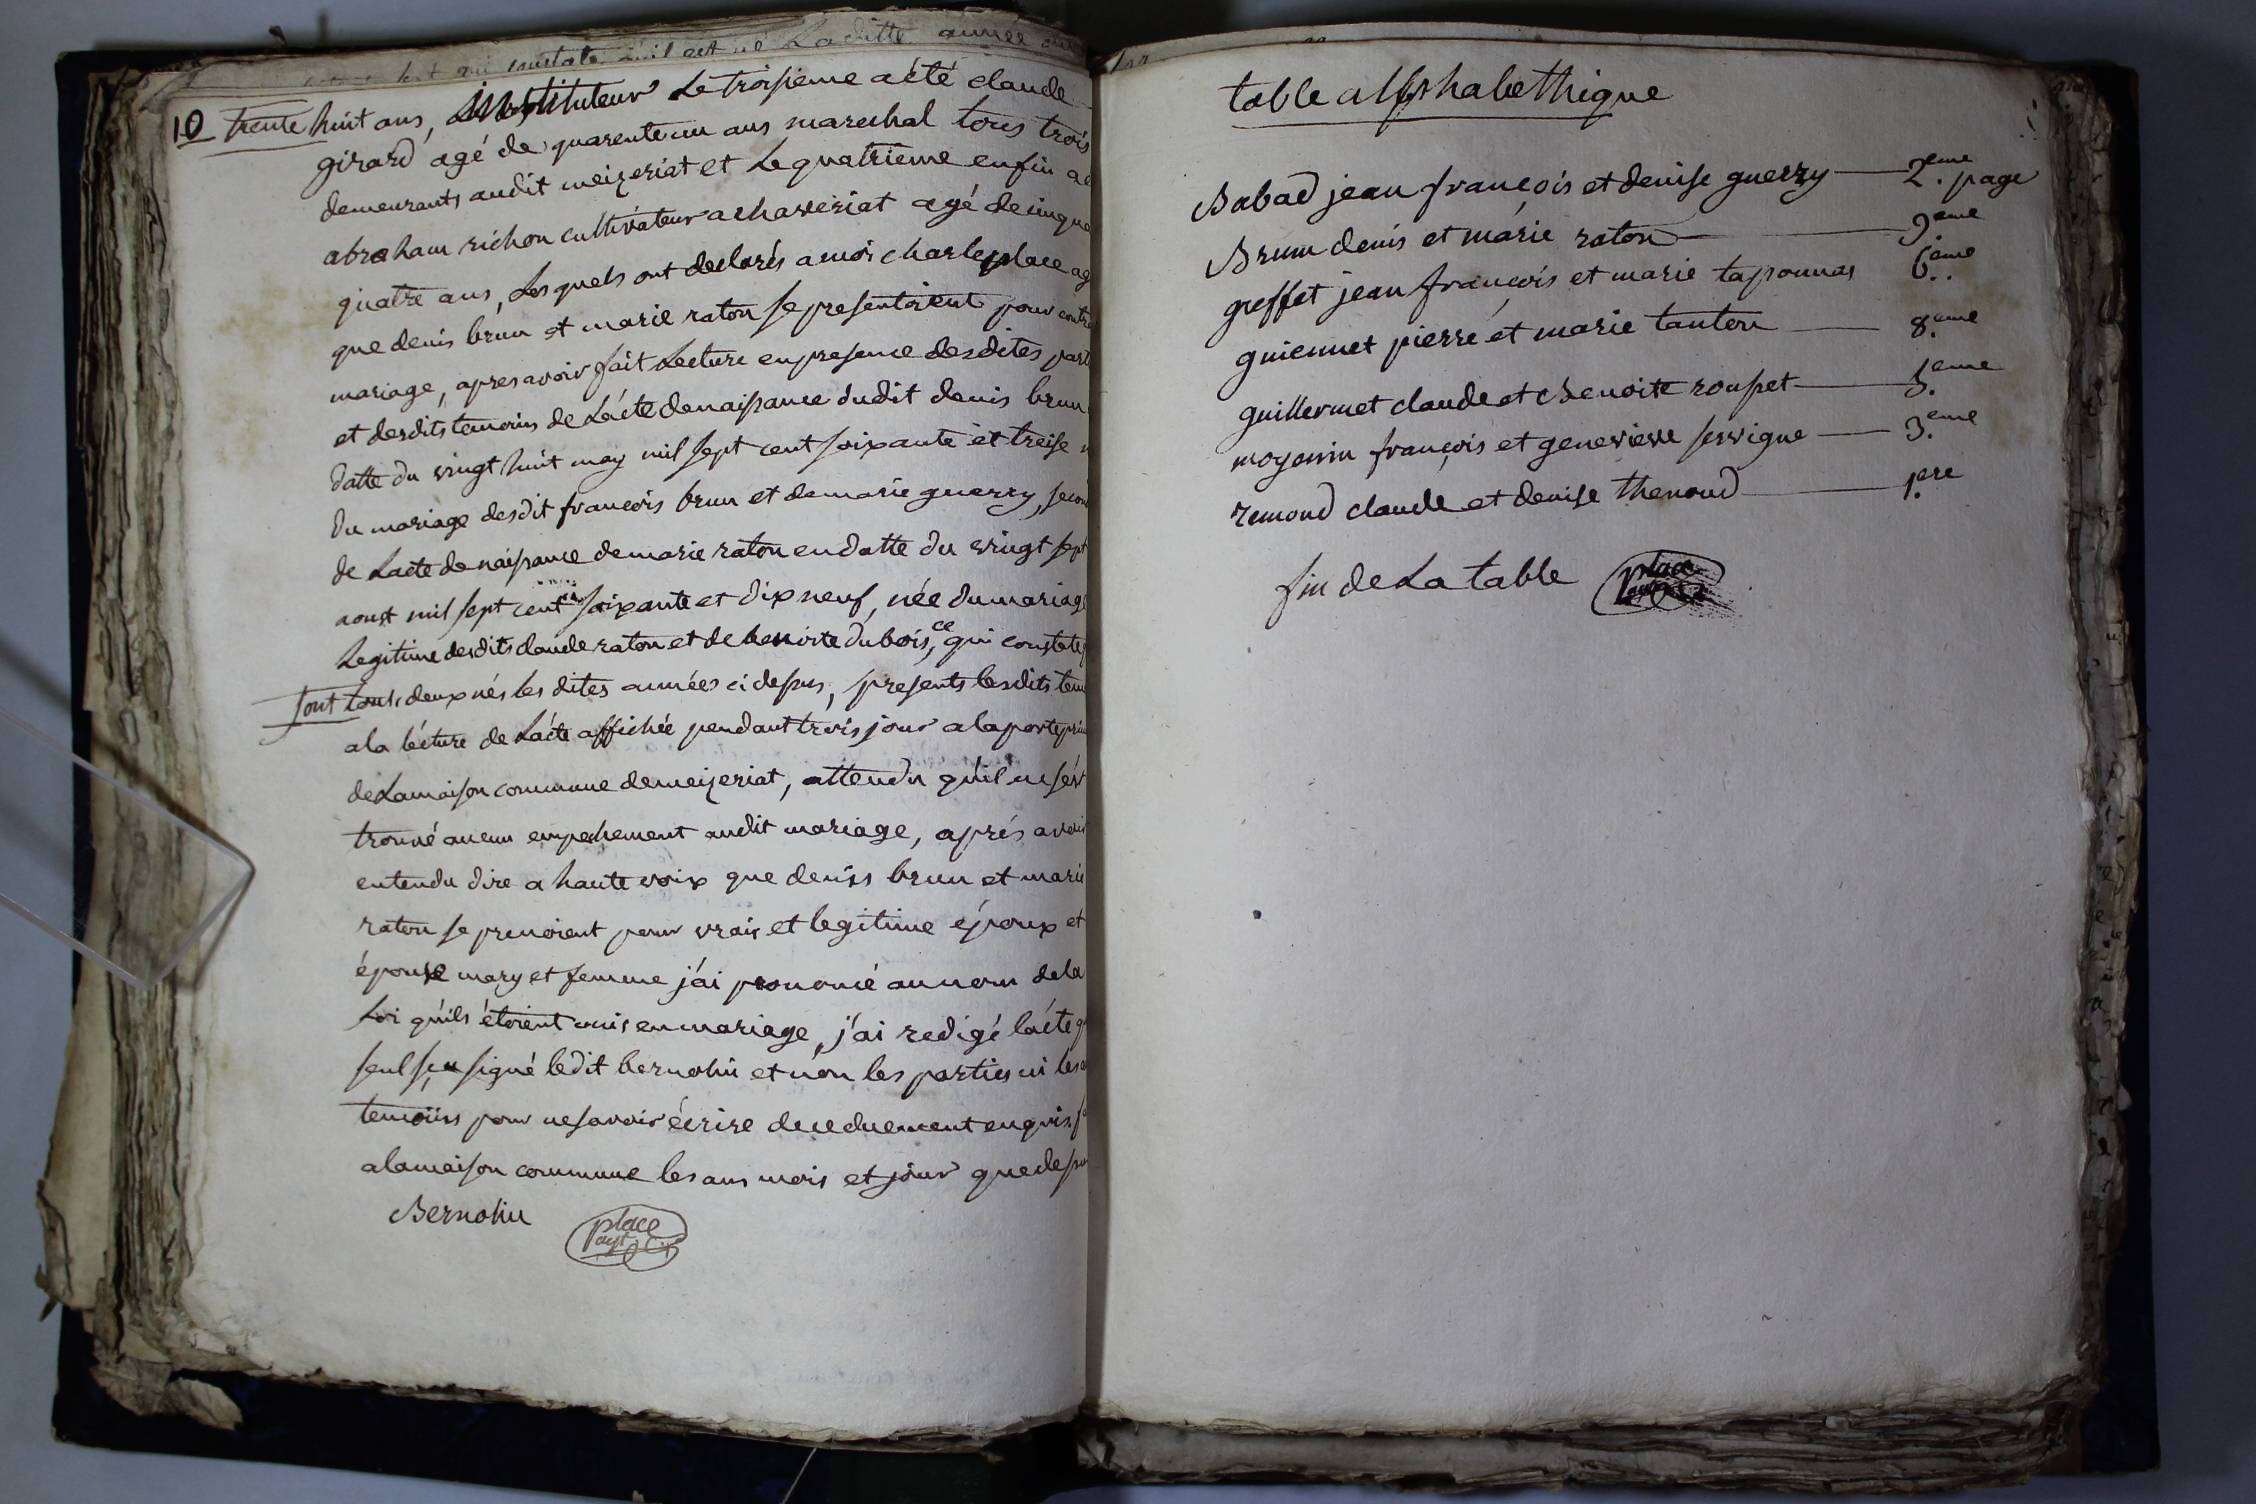 10 trente huit ans, Instituteur Le troisieme a été claude
girard agé de quarente un ans marechal tous trois
demeurants audit meizeriat et Le quatrieme enfin a
abraham richon cultivateur a chaveriat agé de cinqua
quatre ans, Lesquels ont declarés a moi charle place ag
que denis brun et marie raton se presentoient pour contr
mariage, apres avoir fait Lecture en presence desdites part
et desdits temoins de L'acte de naissance dudit denis brun
datte du vingt huit may mil sept cent soixante et treise
du mariage desdit françois brun et de marie guerry, secon
de L'acte de naissance de marie raton en datte du vingt sept
aoust mil sept cent soixante et dix neuf, née du mariage
Legitime desdits claude raton et de benoite dubois, ce qui constate
sont tous deux nés les dites années ci dessus, presents lesdits tem
a la lécture de L'acte affichée pendant trois jour a la porte prin
de La maison commune de meizeriat, attendu qu'il ne s'ést
trouvé aucun empechement audit mariage, aprés avoir
entendu dire a haute voix que deniss brun et marie
raton se prenoient pour vrais et legitime époux et
épouse mary et femme j'ai prononcé au nom de la
Loi qu'ils étoient unis en mariage, j'ai redigé l'acte q
seul signé ledit bernolin et non les parties ni les
temoiins pour ne savoir écrire de ce duement enquis f
a la maison commune les ans mois et jour que dessu
Bernolin place
table alfphabethique
Babad jean françois et denise guerry 2.eme page
Brun denis et márie raton 9eme
greffet jean françois et marie taponnas 6.eme
guiennet pierre et marie tanton 8.eme
guillermet claude et Benoite roupet 5.eme
moyenin françois et genevieve servigne 3.eme
remond claude et denise thenoud 1.ere
fin de La table place